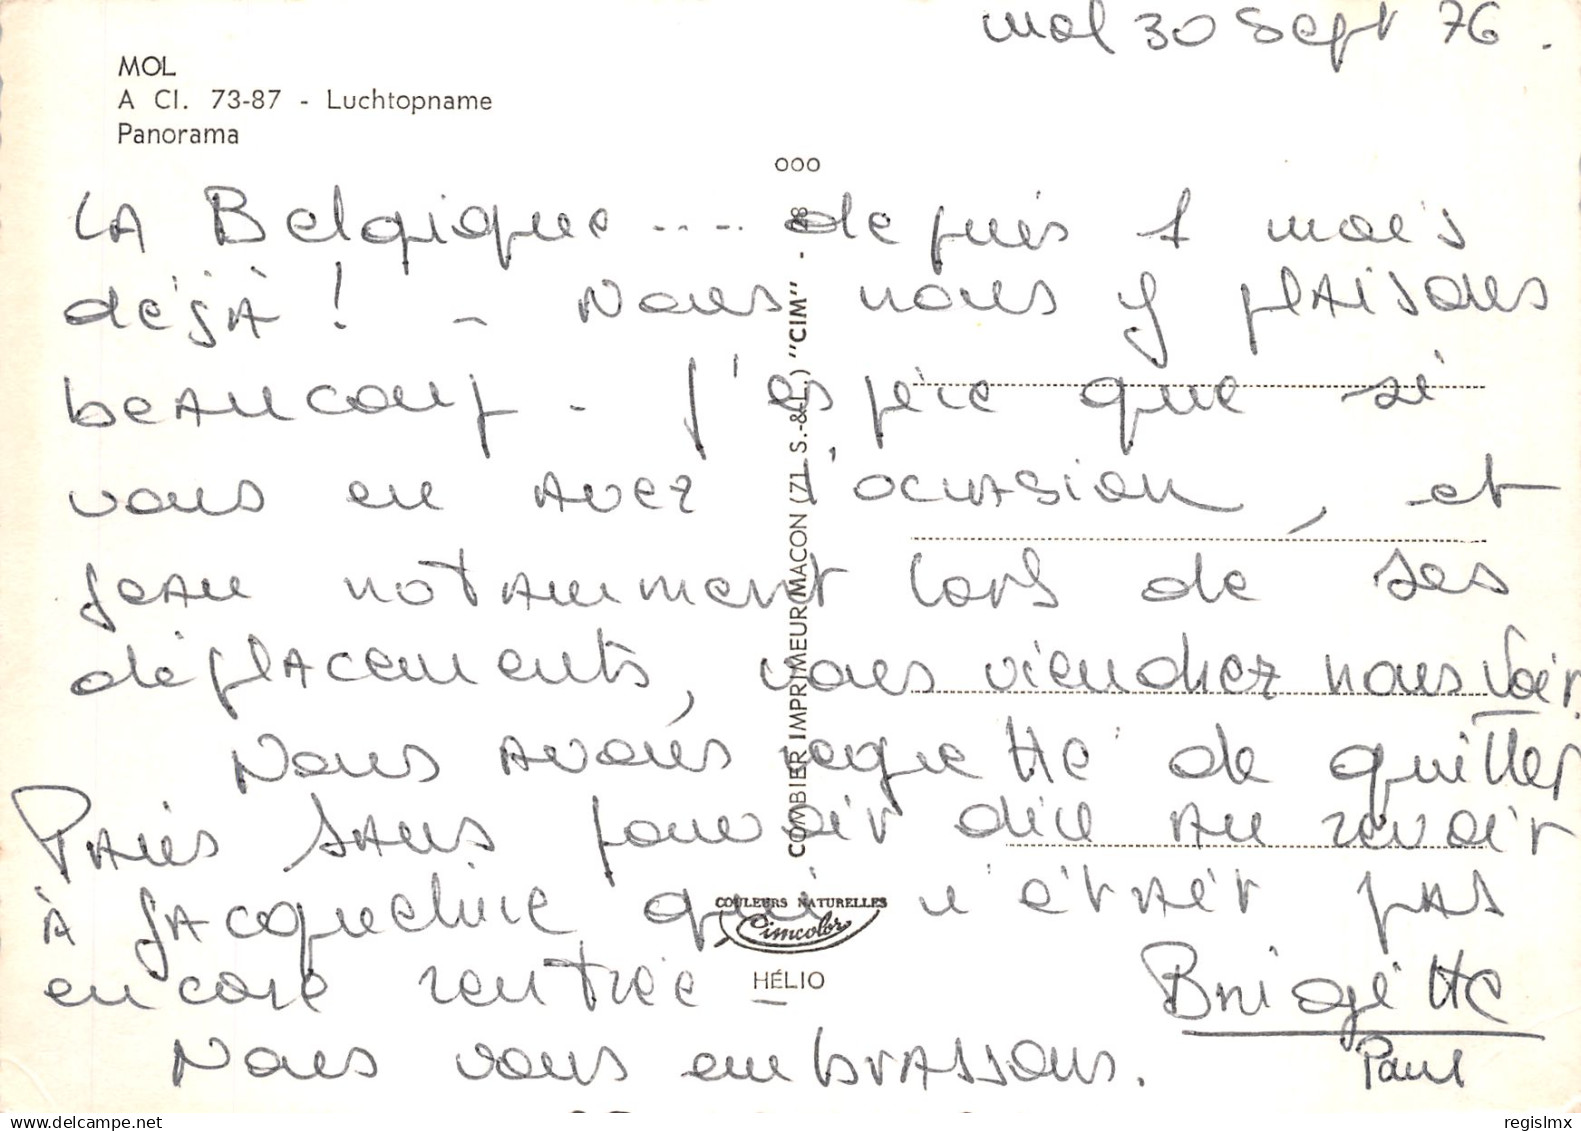 Mol 30 Sept 76.
MOL
A Cl. 73-87 - Luchtopname
Panorama
ooo
LA Belgique .... depuis 1 mois
déjà ! - Nous nous y plaisons
beaucoup - J'espère que si
vous en avez l'occasion, et
Jean notamment lors de ses
déplacements, vous viendrez nous voir.
Nous avons regretté de quitter
Paris sans pouvoir dire au revoir
à Jacqueline qui n'était pas
encore rentrée -
Nous vous embrassons.
Brigitte
Paul
COMBIER IMPRIMEUR MACON (71 S.-&-L.) "CIM" -
COULEURS NATURELLES
Cimcolor
HÉLIO
regislmx
www.delcampe.net